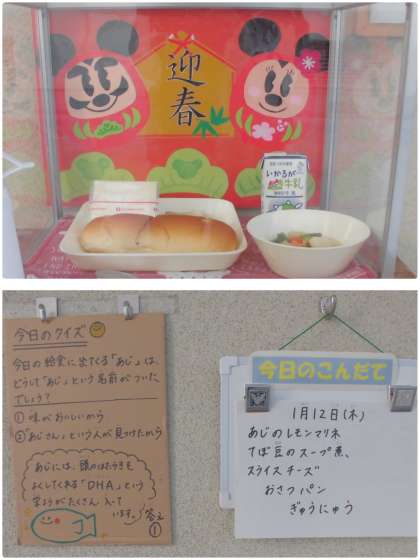 迎
春
いかるが
牛乳
今日のクイズ
今日の給食に出てくる「あじ」は、
どうして「あじ」という名前がついた
でしょう?
①味がおいしいから
②「あじさん」という人が見つけたから
あじには、頭のはたらきを
よくしてくれる「DHA」という
栄ようがたくさん入って
います。
答え
①
今日のこんだて
1月12日(木)
あじのレモンマリネ
てぼ豆のスープ煮
スライスチーズ
おさつパン
ぎゅうにゅう